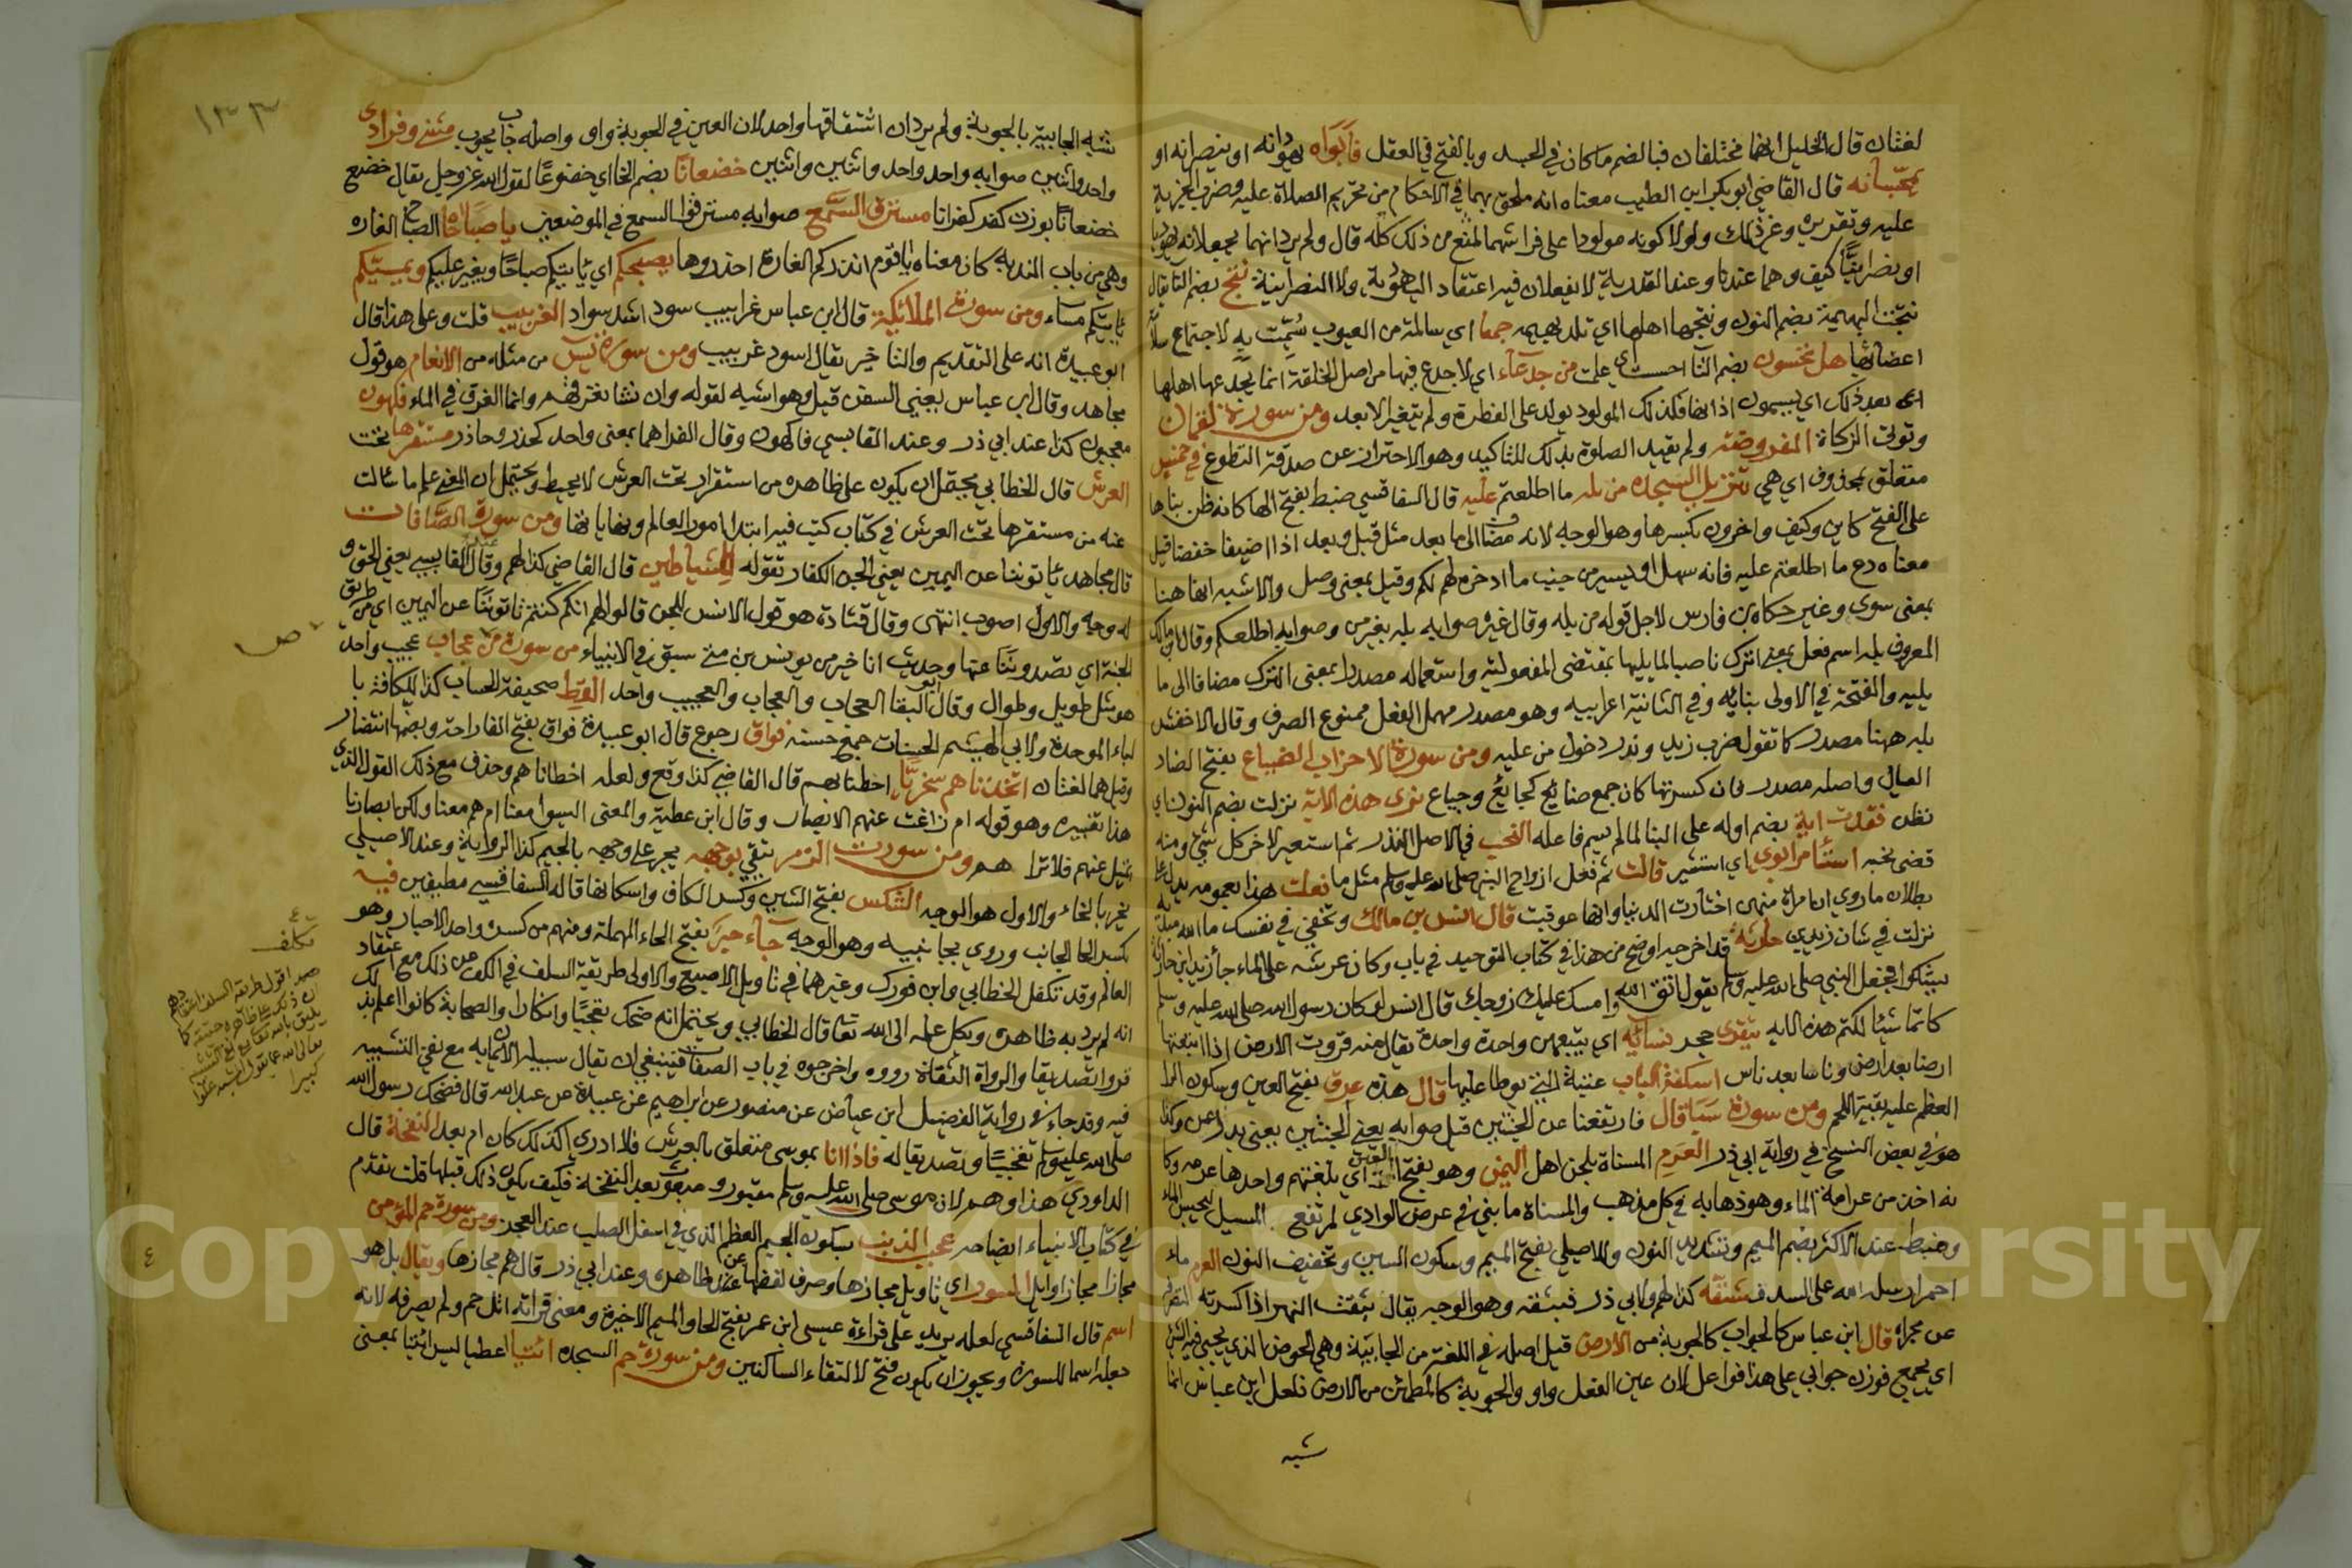 لغتان قال الخليل انهما مختلفان فبالضم ما كان في الجسد وبالفتح في العقل فأبواه يهودانه او ينصرانه او
يمجسانه قال القاضي ابو بكر ابن الطيب معناه انه ملحق بهما في الاحكام من تحريم الصلاة عليه وضرب الجزية
عليه وتقديره وغير ذلك ولولا كونه مولودا على فراشهما لمنع من ذلك كله قال ولم يرد انهما يجعلانه يهوديا
او نصرانيا كيف وهما عندنا وعند القدرية لا يفعلان فيه اعتقاد اليهودية ولا النصرانية تنتج بضم التا يقال
نتجت البهيمة بضم النون ونتجها اهلها اي تلد بهيمه جمعا اي سالمة من العيوب سميت به لاجتماع سلامة
اعضائها هل تحسون بضم التا احست اي علمت من جدعاء اي لا جدع فيها من اصل الخلقة انما يجدعها اهلها
بعد ذلك اي يسمون اذانها فكذلك المولود يولد على الفطرة ولم يتغير الا بعد ومن سورة لقمان
وتوتي الزكاة المفروضة ولم يقيد الصلوة بذلك للتاكيد وهو الاحتراز عن صدقة التطوع في خمس
متعلق بمحذوف اي هي تنزيل السجده من بله ما اطلعتم عليه قال السفاقسي ضبط بفتح الها كانه ظن بناها
على الفتح كاين وكيف واخرون بكسرها وهو الوجه لانه مضاف الى ما بعد مثل قبل وبعد اذا اضيفا خفضا قيل
معناه دع ما اطلعتم عليه فانه سهل او يسير من جنب ما ادخره لهم لكم وقيل بمعنى وصل والاشبه انها هنا
بمعنى سوى وغير حكاه بن فارس لاجل قوله من بله وقال غيره صوابه بله بغير من وصوابه اطلعكم وقال ابن مالك
المعروف بله اسم فعل بمعنى اترك ناصبا لما يليها بمقتضى المفعولية واستعماله مصدرا بمعنى الترك مضافا الى ما
يليه والفتحة في الاولى بنائيه وفي الثانية اعرابيه وهو مصدر مهمل الفعل ممنوع الصرف وقال الاخفش
بله ههنا مصدر كما تقول ضرب زيد وندر دخول من عليه ومن سورة الاحزاب الضياع بفتح الضاد
العيال واصله مصدر فان كسرتها كان جمع ضائع كجائع وجياع نرى هذه الاية نزلت بضم النون اي
نظن فقدت اية بضم اوله على البنا لما لم يسم فاعله النحب في الاصل النذر ثم استعير لاخر كل شي ومنه
قضى نحبه استأمر ابوي اي استشير قالت ثم فعل ازواج النبي صلى الله عليه وسلم مثل ما فعلت هذا بعمومه يدل على
بطلان ما روي ان امراة منهن اختارت الدنيا وانها عوقبت قال انس بن مالك وتخفي في نفسك ما الله مبديه
نزلت في شان زيد بن حارثة قد اخرجه اوضح من هذا في كتاب التوحيد في باب وكان عرشه على الماء جا زيد ابن حارثة
يشكوا فجعل النبي صلى الله عليه وسلم يقول اتق الله وامسك عليك زوجك قال انس لو كان رسول الله صلى الله عليه وسلم
كاتما شيئا لكتم هذه الايه تتقرى حجر نسائه اي يتبعهن واحدة واحدة يقال منه قروت الارض اذا اتبعتها
ارضا بعد ارض وناسا بعد ناس اسكفة الباب عتبته التي يوطا عليها قال هذه عرق بفتح العين وسكون الرا
العظم عليه بقية اللحم ومن سورة سبا قال فارتفعتا عن الجنتين قيل صوابه يعني الجنتين يعني بدل عن وكذا
هو في بعض النسخ في رواية ابي ذر العرم المسناة بلحن اهل اليمن وهو بفتح العين اي بلغتهم واحدها عرمه وكا
نه اخذ من عرامة الماء وهو ذهابه في كل مذهب والمسناة ما بني في عرض الوادي لمرتفع المسيل ليحبس الماء
وضبط عند الاكثر بضم الميم وتشديد النون والاصيلي بفتح الميم وسكون السين وتخفيف النون العرم ماء
احمر ارسله الله على السد فشقه كذا لهم ولابي ذر فبثقه وهو الوجه يقال بثقت النهر اذا كسرته
عن مجراه قال ابن عباس كالجواب كالجوبة من الارض قيل اصله في اللغة من الجابية وهي الحوض الذي يجبى فيه الشي
اي يجمع فوزن جوابي على هذا فواعل لان عين الفعل واو والجوبة كالمطمئن من الارض فلعل ابن عباس انما
شبه
١٣٣
شبه الجابية بالجوبة ولم يرد ان اشتقاقهما واحد لان العين في الجوبة واو واصله جاب يجوب مثنى وفرادى
واحد واثنين صوابه واحد واحد واثنين واثنين خضعانا بضم الخا اي خضوعا لقول الله عز وجل يقال خضع
خضعانا بوزن كفر كفرانا مسترق السمع صوابه مسترقوا السمع في الموضعين يا صباحاه الصباح الغاره
وهي من باب الندبة كان معناه يا قوم انذركم الغارة احذروها يصبحكم اي ياتيكم صباحا ويغير عليكم ويمسيكم
ياتيكم مساء ومن سورة الملائكة قال ابن عباس غرابيب سود اشد سواد الغربيب قلت وعلى هذا قال
ابو عبيدة انه على التقديم والتاخير يقال اسود غربيب ومن سورة يس من مثله من الانعام هو قول
مجاهد وقال ابن عباس يعني السفن قيل وهو اشبه لقوله وان نشا نغرقهم وانما الغرق في الماء فكهون
معجبون كذا عند ابي ذر وعند القابسي فاكهون وقال الفرا هما بمعنى واحد كحذر وحاذر مستقرها تحت
العرش قال الخطابي يحتمل ان يكون على ظاهره من استقرار تحت العرش لا نحيط ويحتمل ان المعنى علم ما سالت
عنه من مستقرها تحت العرش في كتاب كتب فيه ابتدا امور العالم ونهاياتها ومن سورة الصافات
قال مجاهد ياتوننا عن اليمين يعني الجن الكفار تقوله للشياطين قال القاضي كذا لهم وقال القابسي يعني الحق و
له وجه والاول اصوب انتهى وقال قتادة هو قول الانس للجن قالوا لهم انكم كنتم تاتوننا عن اليمين اي من طريق
الجنة اي تصدوننا عنها وحديث انا خير من يونس بن متى سبق في الانبياء من سورة ص عجاب عجيب واحد
هو مثل طويل وطوال وقال ابو البقا العجاب والعجاب والعجيب واحد القط صحيفة الحساب كذا للكافة با
لباء الموحدة ولابي الهيثم الحسنات جمع حسنه فواق رجوع قال ابو عبيدة فواق بفتح الفا راحة وبضمها انتظار
وقيل هما لغتان اتخذناهم سخريا احطنا بهم قال القاضي كذا وقع ولعله اخطاناهم وحذف مع ذلك القول الذي
هذا تفسيره وهو قوله ام زاغت عنهم الابصار وقال ابن عطية والمعنى اليسوا معنا ام هم معنا ولكن ابصارنا
تميل عنهم فلا تراهم ومن سورت الزمر يتقي بوجهه يجر على وجهه بالجيم كذا الرواية وعند الاصيلي
يخر بالخاء والاول هو الوجه الشكس بفتح الشين وكسر الكاف واسكانها قاله السفاقسي مطيفين فيه
بكسر الحا الجانب وروي بجانبيه وهو الوجه جاء حبر بفتح الحاء المهملة ومنهم من كسره واحد الاحبار وهو
العالم وقد تكلف الخطابي وابن فورك وغيرهما في تاويل الاصبع والاولى طريقة السلف في الكف عن ذلك مع اعتقاد
انه لم يرد به ظاهره ويكل علمه الى الله تعا قال الخطابي ويحتمل انه ضحك تعجبا وانكارا والصحابة كانوا اعلم بذلك
فروا تصديقا والرواة الثقاة رووه واخرجوه في باب الصفات فينبغي ان يقال سبيله الايمان به مع نفي التشبيه
فيه وقد جاء في رواية الفضيل ابن عياض عن منصور عن ابراهيم عن عبيدة عن عبد الله قال فضحك رسول الله
صلى الله عليه وسلم تعجبا وتصديقا له فاذا انا بموسى متعلق بالعرش فلا ادري اكذلك كان ام بعد النفخة قال
الداودي هذا وهم لان موسى صلى الله عليه وسلم مقبور ومبعوث بعد النفخة فكيف يكون ذلك قبلها قلت تقدم
في كتاب الانبياء ايضاحه عجب الذنب بسكون الجيم العظم الذي في اسفل الصلب عند العجز ومن سورة حم المؤمن
مجازا مجاز اوايل السور اي تاويل مجازها وصرف لفظها عن ظاهره وعند ابي ذر قال حم مجازها ويقال بل هو
اسم قال السفاقسي لعله يريد على قراءة عيسى ابن عمر بفتح الحا والميم الاخيرة ومعنى قراته اتل حم ولم يصرفه لانه
جعله اسما للسورة ويجوز ان يكون فتح لالتقاء الساكنين ومن سورة حم السجده ائتيا اعطيا ليس ائتيا بمعنى
ص
تكلف
كبيرا
٤
Copyright © King Saud University